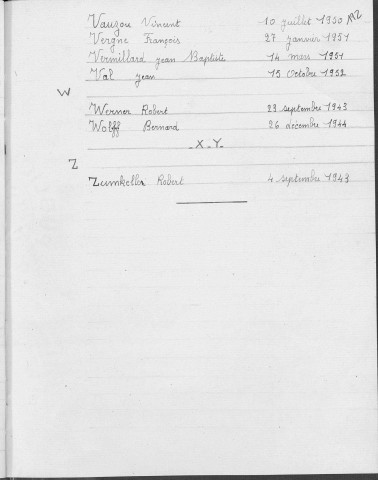 Vauzou Vincent 10 juillet 1950
Vergne François 27 janvier 1951
Vermillard Jean Baptiste 14 mars 1951
Val Jean 15 octobre 1952
W
Werner Robert 29 septembre 1943
Wolff Bernard 26 décembre 1944
_X_Y_
Z
Zumkeller Robert 4 septembre 1943